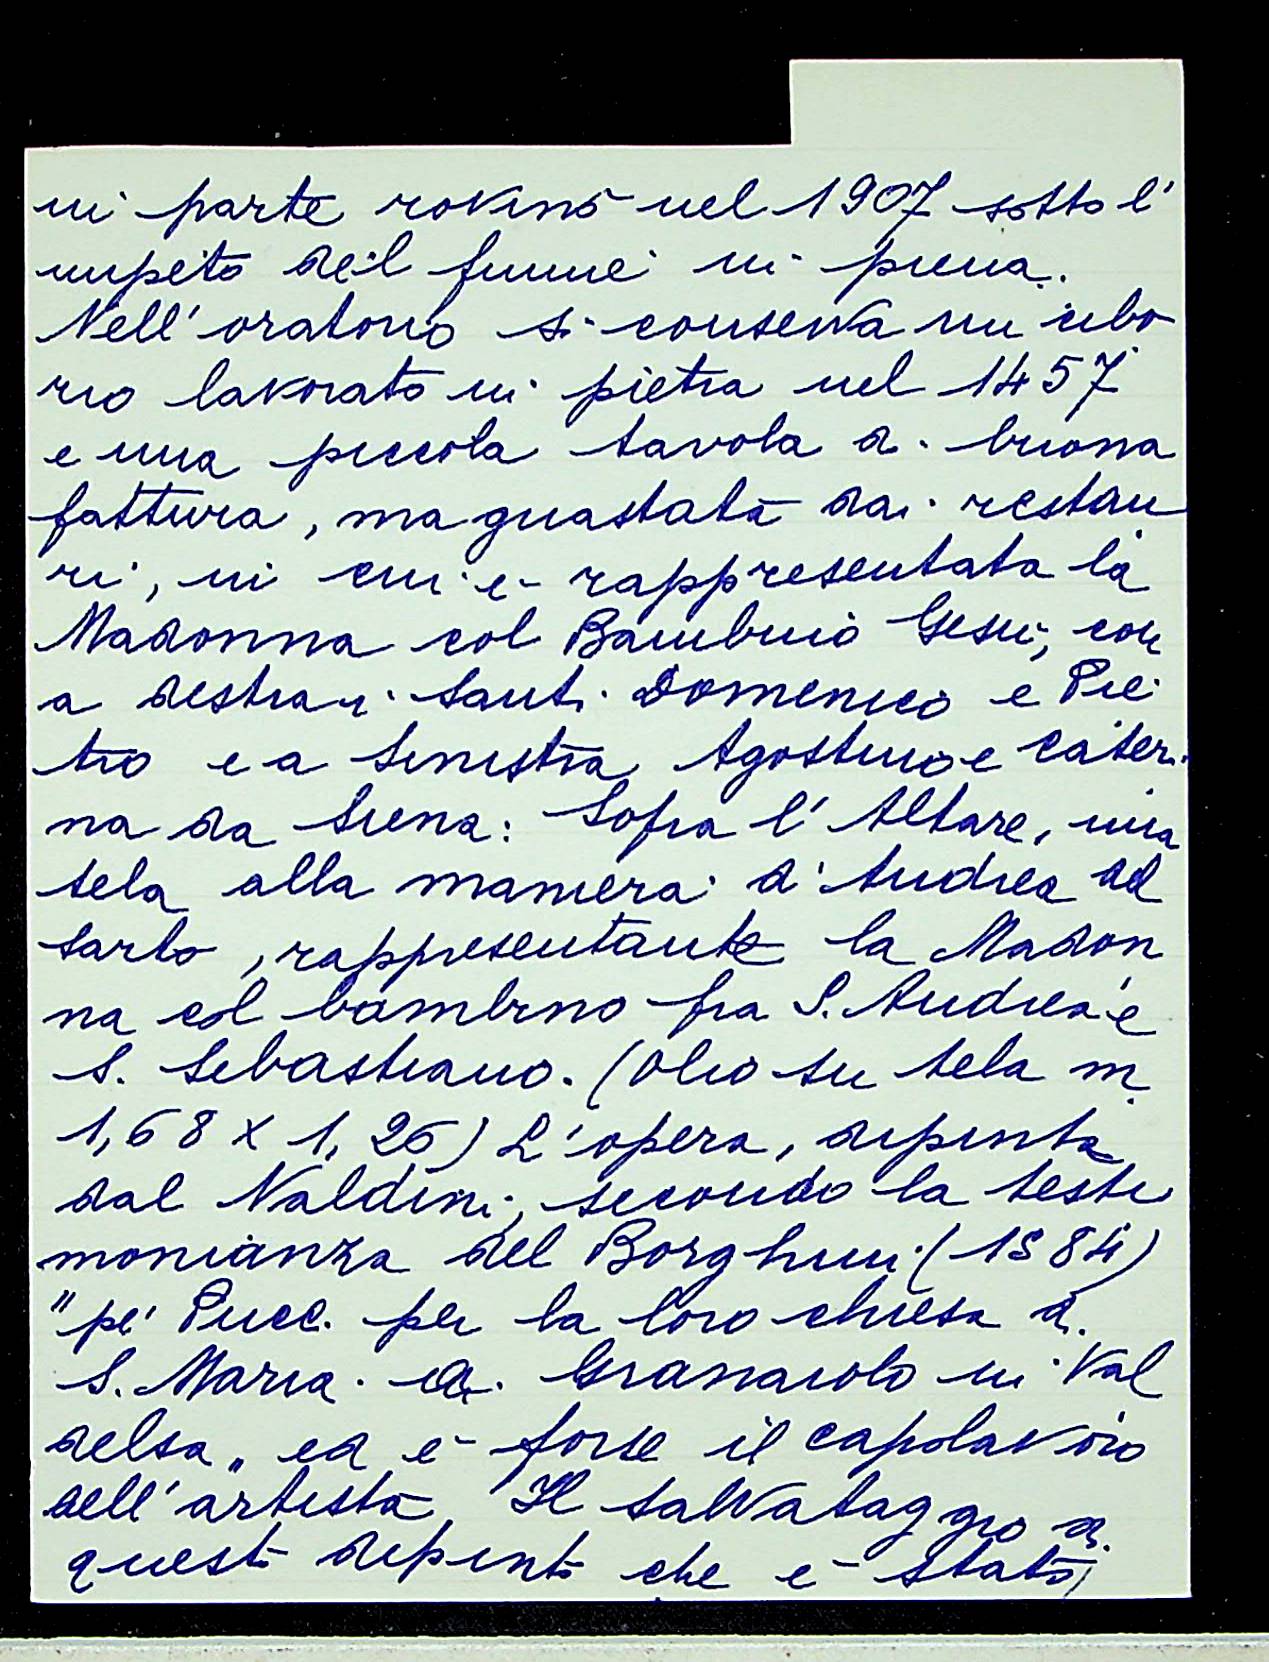 in parte rovinò nel 1907 sotto l'
impeto del fiume in piena.
Nell'oratorio si conserva un cibo
rio lavorato in pietra nel 1457
e una piccola tavola di buona
fattura, ma guastata dai restau
ri, in cui è rappresentata la
Madonna col Bambino Gesù, con
a destra i Santi Domenico e Pie
tro e a sinistra Agostino e Cateri
na da Siena. Sopra l'Altare, una
tela alla maniera d'Andrea del
Sarto, rappresentante la Madon
na col bambino fra S. Andrea e
S. Sebastiano. (Olio su tela m
1,68 x 1,26) L'opera, dipinta
dal Naldini, secondo la testi
monianza del Borghini (1584)
"pe' Pucci per la loro chiesa di
S. Maria di Granaiolo in Val
delsa" ed è forse il capolavoro
dell'artista. Il salvataggio di
questo dipinto che è stato,